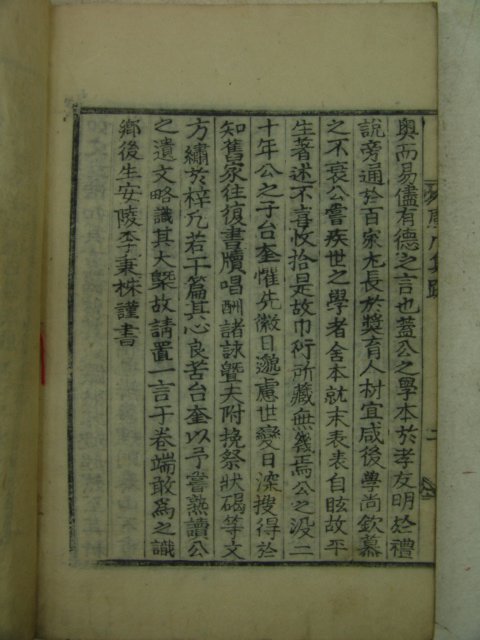 奧而易儘有德之言也蓋公之學本於孝友明於禮
說旁通於百家尤長於奬育人材宜咸後學尚欽慕
之不衰公嘗疾世之學者舍本就末表表自眩故平
生著述不喜收拾是故巾衍所藏無幾焉公之沒二
十年公之子台奎懼先徽日邈慮世變日深搜得於
知舊家往復書牘唱酬諸詠曁夫附挽祭狀碣等文
方繡於梓凡若干篇其心良苦台奎以予嘗熟讀公
之遺文略識其大槩故請置一言于卷端敢爲之識
鄕後生安陵李秉株謹書
二